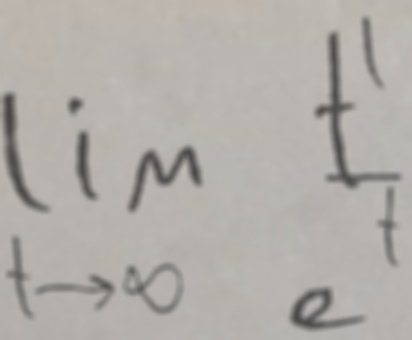 lim t^1
t→∞ e^t